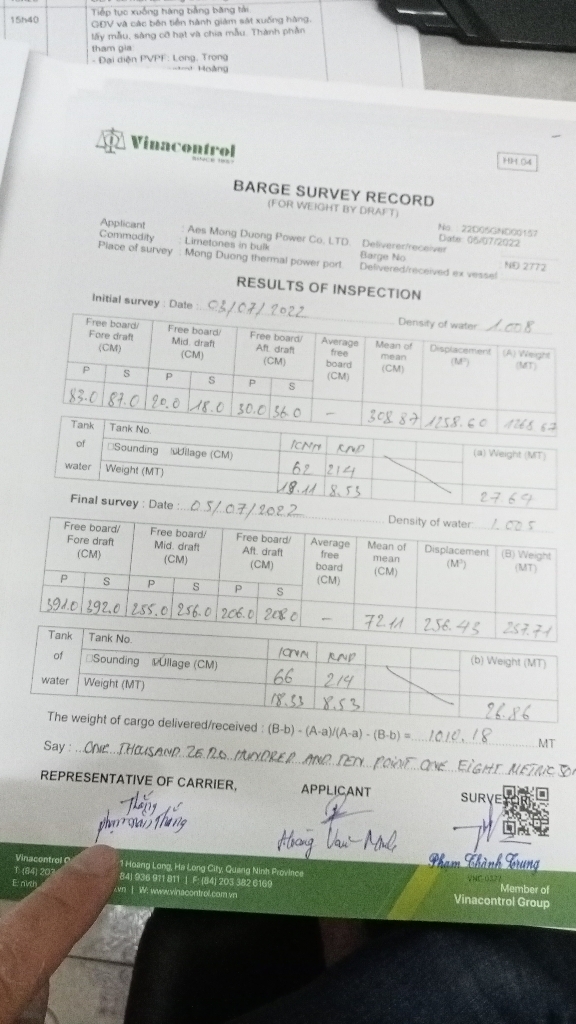 15h40
Tiếp tục xuống hàng bằng băng tải.
GĐV và các bên tiến hành giám sát xuống hàng,
lấy mẫu, sàng cỡ hạt và chia mẫu. Thành phần
tham gia:
- Đại diện PVPF: Long, Trong
Hoàng
Vinacontrol
SINCE 1957
HH 04
BARGE SURVEY RECORD
(FOR WEIGHT BY DRAFT)
No. : 22D05GND00157
Applicant : Aes Mong Duong Power Co, LTD. Date: 05/07/2022
Commodity : Limetones in bulk Deliverer/receiver
Place of survey : Mong Duong thermal power port. Barge No. NĐ 2772
Delivered/received ex vessel
RESULTS OF INSPECTION
Initial survey : Date : 03/07/2022 Density of water 1.008
Free board/ Fore draft (CM) Free board/ Mid. draft (CM) Free board/ Aft. draft (CM) Average free board (CM) Mean of mean (CM) Displacement (M³) (A) Weight (MT)
P S P S P S
83.0 87.0 20.0 18.0 30.0 36.0 - 308.87 1258.60 1268.67
Tank of water Tank No. ICNM RND (a) Weight (MT)
Sounding Ullage (CM) 62 214
Weight (MT) 19.11 8.53 27.64
Final survey : Date : 05/07/2022 Density of water: 1.005
Free board/ Fore draft (CM) Free board/ Mid. draft (CM) Free board/ Aft. draft (CM) Average free board (CM) Mean of mean (CM) Displacement (M³) (B) Weight (MT)
P S P S P S
391.0 392.0 255.0 256.0 206.0 208.0 - 72.11 256.43 257.71
Tank of water Tank No. ICNM RND (b) Weight (MT)
Sounding Ullage (CM) 66 214
Weight (MT) 18.33 8.53 26.86
The weight of cargo delivered/received : (B-b) - (A-a)/(A-a) - (B-b) = 1010.18 MT
Say : ONE THOUSAND ZERO HUNDRED AND TEN POINT ONE EIGHT METRIC TON
REPRESENTATIVE OF CARRIER, APPLICANT SURVEYOR
Thắng
Hoàng Văn
Phạm Thành Trung
Vinacontrol
1 Hoang Long, Ha Long City, Quang Ninh Province
T: (84) 203 84) 936 911 811 | F: (84) 203 382 6169
.vn | W: www.vinacontrol.com.vn
Member of
Vinacontrol Group